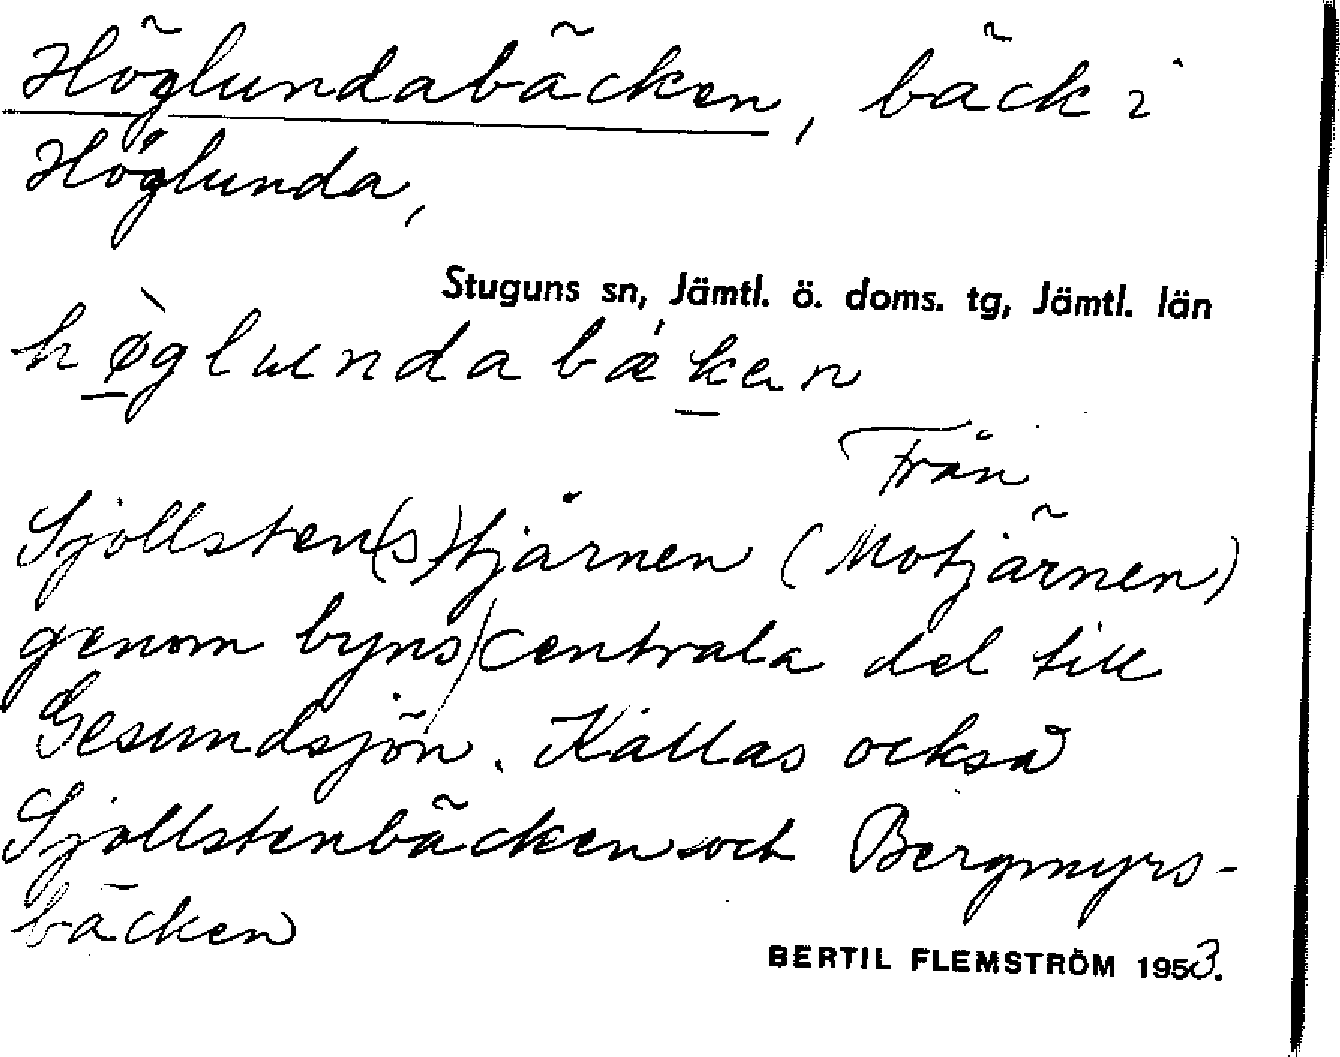 Höglundabäcken, bäck i
Höglunda,
Stuguns sn, Jämtl. ö. doms. tg, Jämtl. län
hø̀glundabǽken
Från
Sjöllsten(s)tjärnen (Motjärnen)
genom byns centrala del till
Gesundsjön. Kallas också
Sjöllstenbäcken och Bergmyrs-
bäcken
BERTIL FLEMSTRÖM 1953.